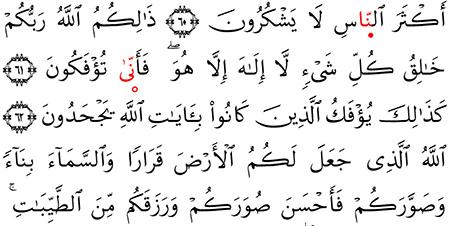 أَكْثَرَ ٱلنَّاسِ لَا يَشْكُرُونَ ٦٠ ذَٰلِكُمُ ٱللَّهُ رَبُّكُمْ
خَٰلِقُ كُلِّ شَىْءٍ لَّآ إِلَٰهَ إِلَّا هُوَ ۖ فَأَنَّىٰ تُؤْفَكُونَ ٦١
كَذَٰلِكَ يُؤْفَكُ ٱلَّذِينَ كَانُوا۟ بِـَٔايَٰتِ ٱللَّهِ يَجْحَدُونَ ٦٢
ٱللَّهُ ٱلَّذِى جَعَلَ لَكُمُ ٱلْأَرْضَ قَرَارًا وَٱلسَّمَآءَ بِنَآءً
وَصَوَّرَكُمْ فَأَحْسَنَ صُوَرَكُمْ وَرَزَقَكُم مِّنَ ٱلطَّيِّبَٰتِ ۚ